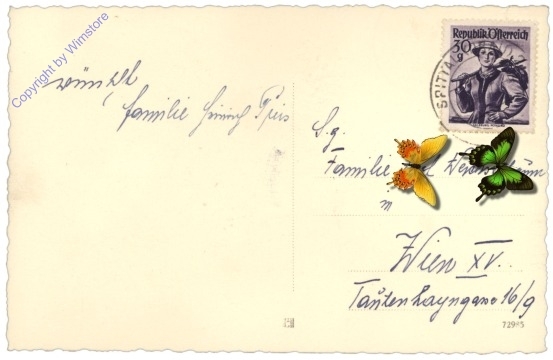 Copyright by Wimstore
wünscht
Familie Heinrich
S.g.
Familie
in
Wien XV.
Tautenhayngasse 16/9
Republik Österreich
30
g
SPITTAL
72985